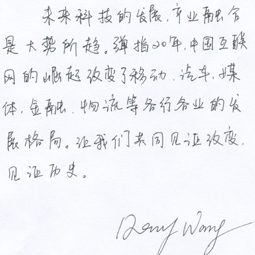 未来科技的发展，产业融合
是大势所趋。弹指20年，中国互联
网的崛起改变了移动、汽车、媒
体、金融、物流等各行各业的发
展格局。让我们共同见证改变，
见证历史。
Wang